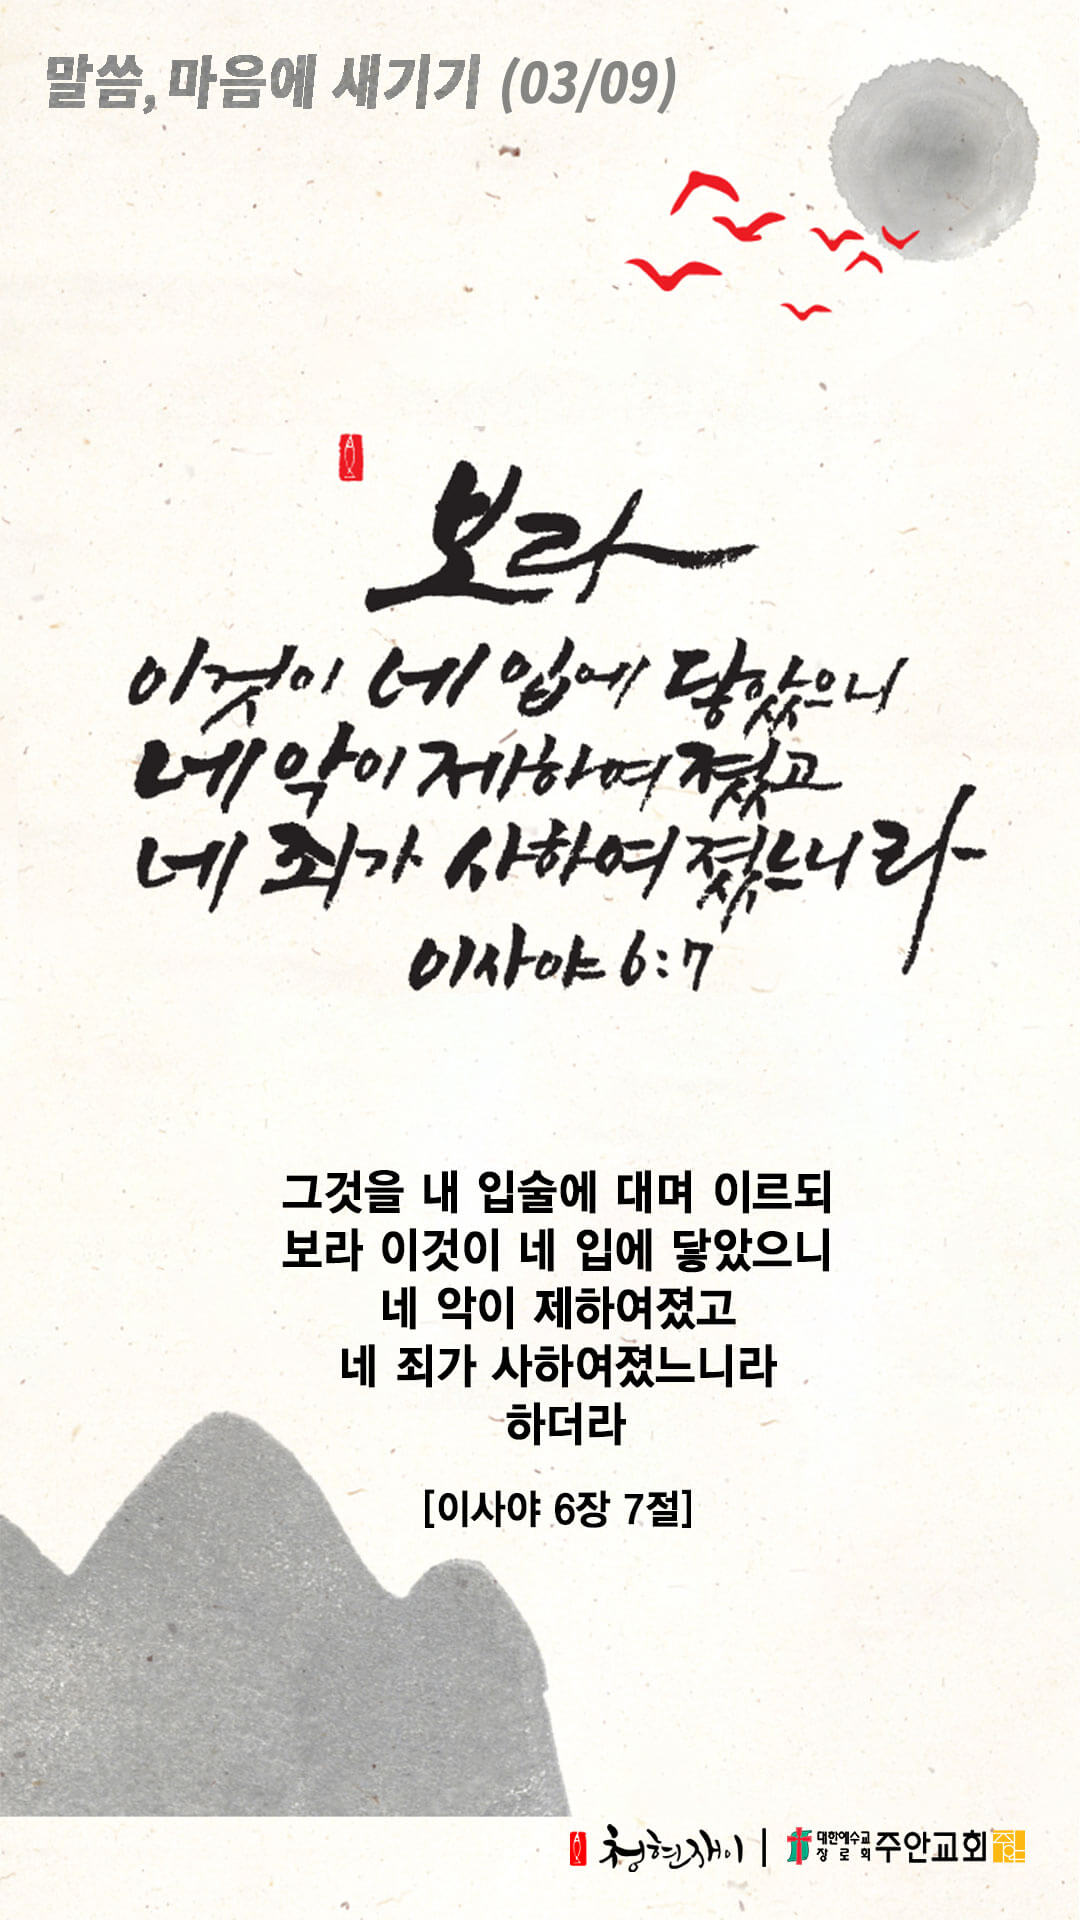 말씀, 마음에 새기기 (03/09)
보라
이것이 네 입에 닿았으니
네 악이 제하여졌고
네 죄가 사하여졌느니라
이사야 6:7
그것을 내 입술에 대며 이르되
보라 이것이 네 입에 닿았으니
네 악이 제하여졌고
네 죄가 사하여졌느니라
하더라
[이사야 6장 7절]
청현재이 | 대한예수교 장로회 주안교회